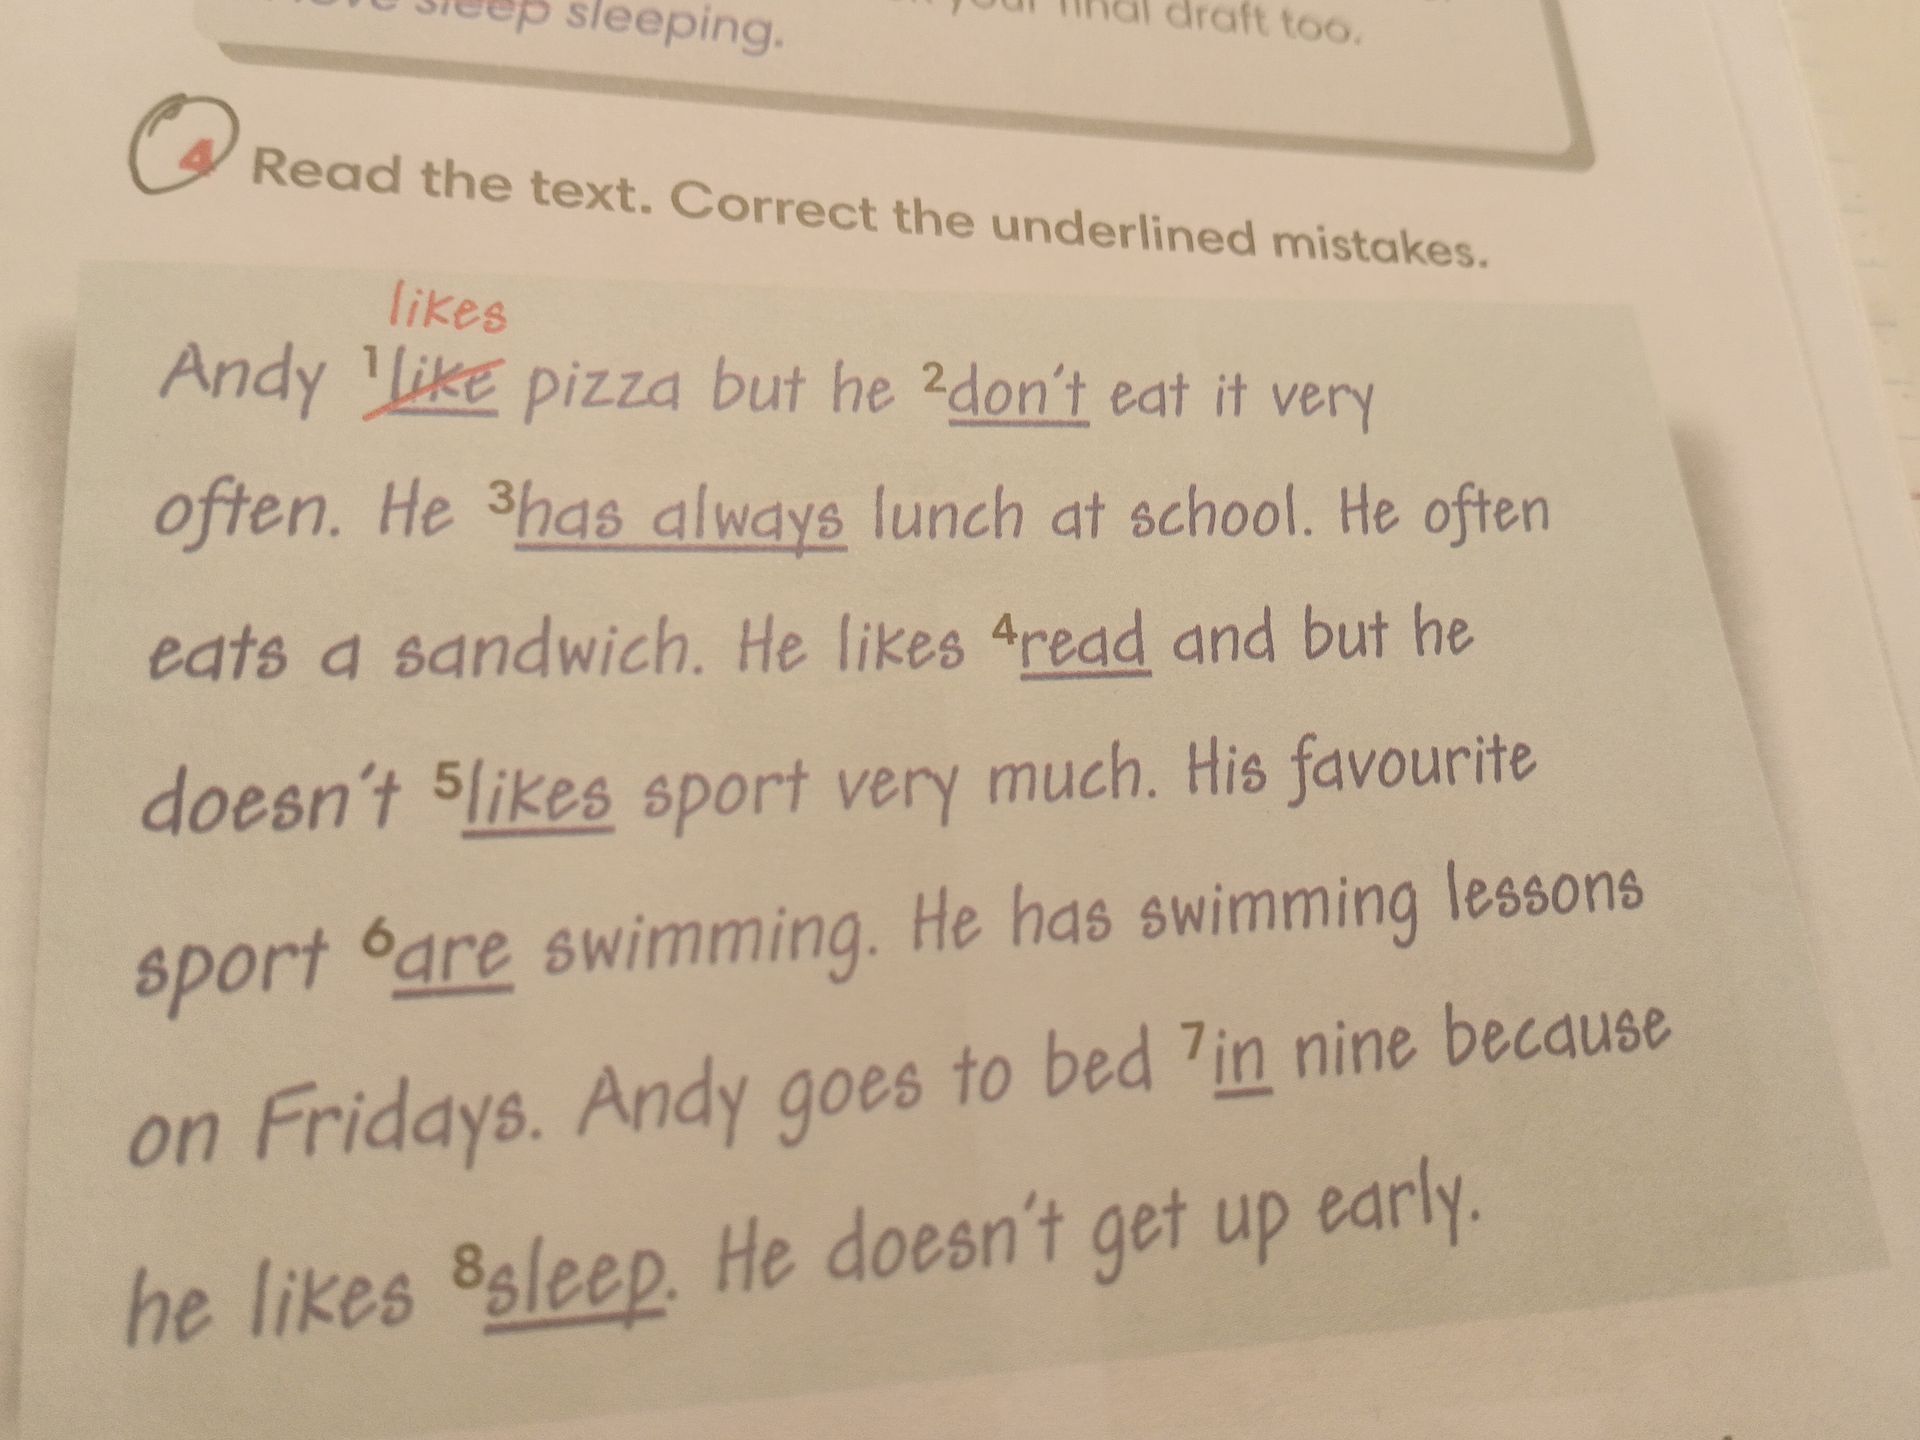 sleep sleeping.
your final draft too.
4 Read the text. Correct the underlined mistakes.
likes
Andy 1like pizza but he 2don't eat it very
often. He 3has always lunch at school. He often
eats a sandwich. He likes 4read and but he
doesn't 5likes sport very much. His favourite
sport 6are swimming. He has swimming lessons
on Fridays. Andy goes to bed 7in nine because
he likes 8sleep. He doesn't get up early.